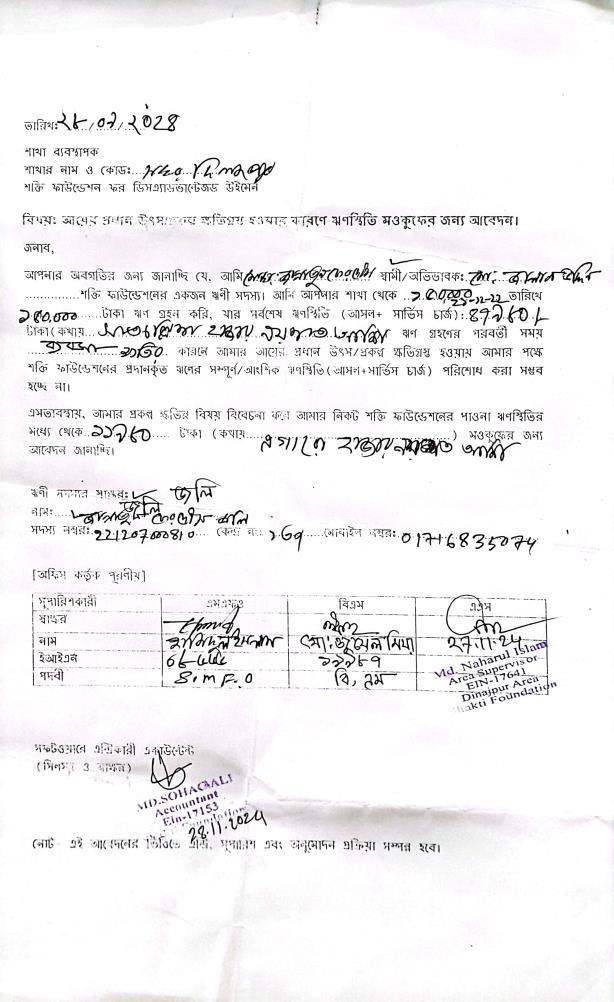 তারিখঃ২৮/০৭/২০২৪
শাখা ব্যবস্থাপক
শাখার নাম ও কোডঃ...সদর...দিনাজপুর
শক্তি ফাউন্ডেশন ফর ডিসএ্যাডভান্টেজড উইমেন
বিষয়ঃ আয়ের প্রধান উৎস/প্রকল্প ক্ষতিগ্রস্থ হওয়ার কারণে ঋণস্থিতি মওকুফের জন্য আবেদন।
জনাব,
আপনার অবগতির জন্য জানাচ্ছি যে, আমি স্বামী/অভিভাবকঃ মো:
শক্তি ফাউন্ডেশনের একজন ঋণী সদস্য। আমি আপনার শাখা থেকে তারিখে
১৫০,০০০ টাকা ঋণ গ্রহন করি, যার সর্বশেষ ঋণস্থিতি (আসল+ সার্ভিস চার্জ):
টাকা(কথায় হাজার নয়শত আশি ঋণ গ্রহণের পরবর্তী সময়
কারনে আমার আয়ের প্রধান উৎস/প্রকল্প ক্ষতিগ্রস্থ হওয়ায় আমার পক্ষে
শক্তি ফাউন্ডেশনের প্রদানকৃত ঋণের সম্পূর্ণ/আংশিক ঋণস্থিতি(আসল+সার্ভিস চার্জ) পরিশোধ করা সম্ভব
হচ্ছে না।
এমতাবস্থায়, আমার প্রকল্প ক্ষতির বিষয় বিবেচনা করে আমার নিকট শক্তি ফাউন্ডেশনের পাওনা ঋণস্থিতির
মধ্যে থেকে..১১৯৮০.... টাকা (কথায় এগারো হাজার নয়শত আশি) মওকুফের জন্য
আবেদন জানাচ্ছি।
ঋণী সদস্যর স্বাক্ষরঃ জলি
নামঃ জান্নাতুল ফেরদৌস জলি
সদস্য নম্বরঃ22120700810.... কেন্দ্র নং: ১৩৭.....মোবাইল নম্বরঃ 01716835074
[অফিস কর্তৃক পূরণীয়]
সুপারিশকারী এমএফও বিএম এএস
স্বাক্ষর
নাম হামিদুল ইসলাম মো: জুয়েল মিয়া 27.11.24
ইআইএন ১১৯৮৭
পদবী S.M.F.O বি,এম
Md. Naharul Islam
Area Supervisor
EIN-17641
Dinajpur Area
Shakti Foundation
সফটওয়্যারে এন্ট্রিকারী একাউন্টেন্ট
(সিলসহ ও স্বাক্ষর)
MD.SOHAG ALI
Accountant
Ein-17153
Foundation
28.11.2024
নোট- এই আবেদনের ভিত্তিতে এন্ট্রি, সুপারিশ এবং অনুমোদন প্রক্রিয়া সম্পন্ন হবে।